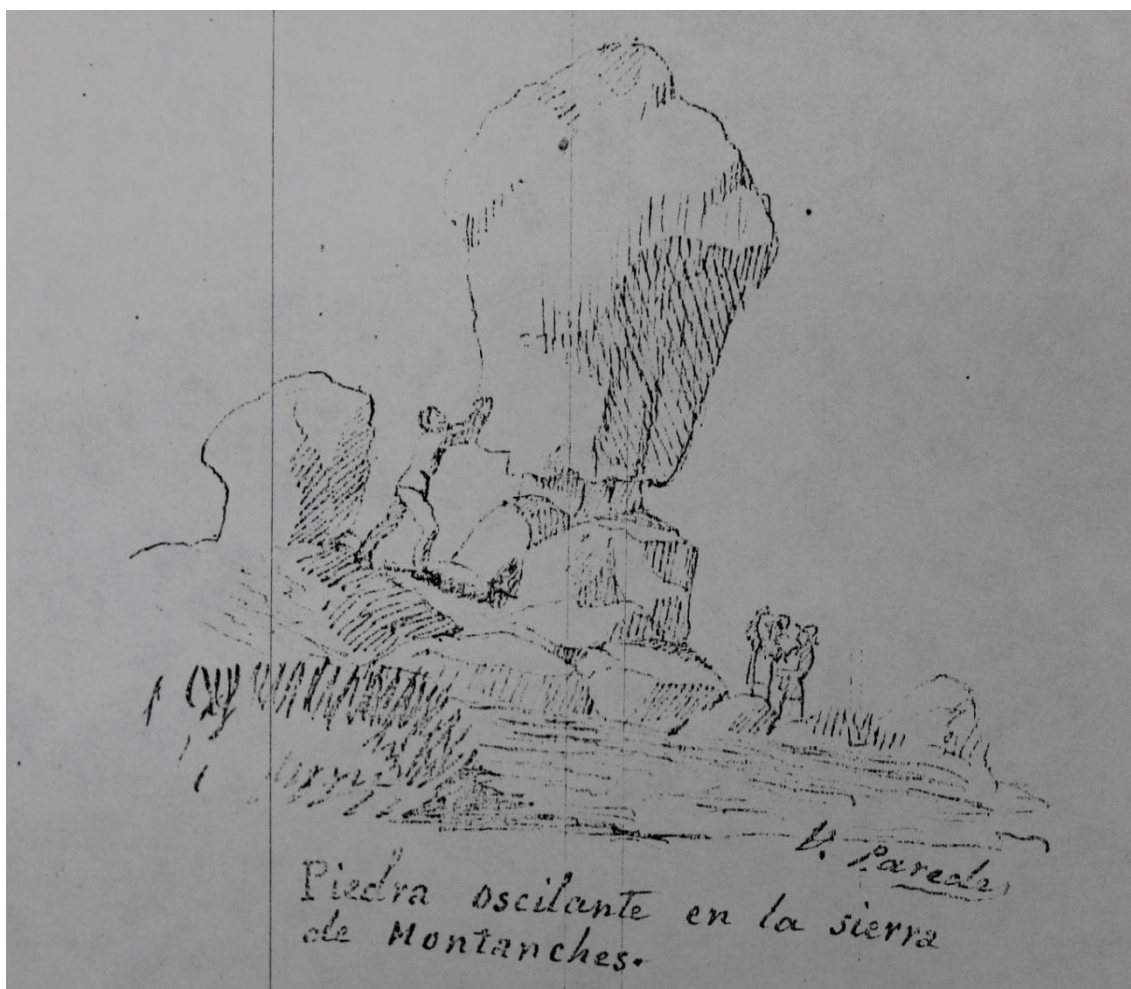 V. Paredes
Piedra oscilante en la sierra
de Montanches.